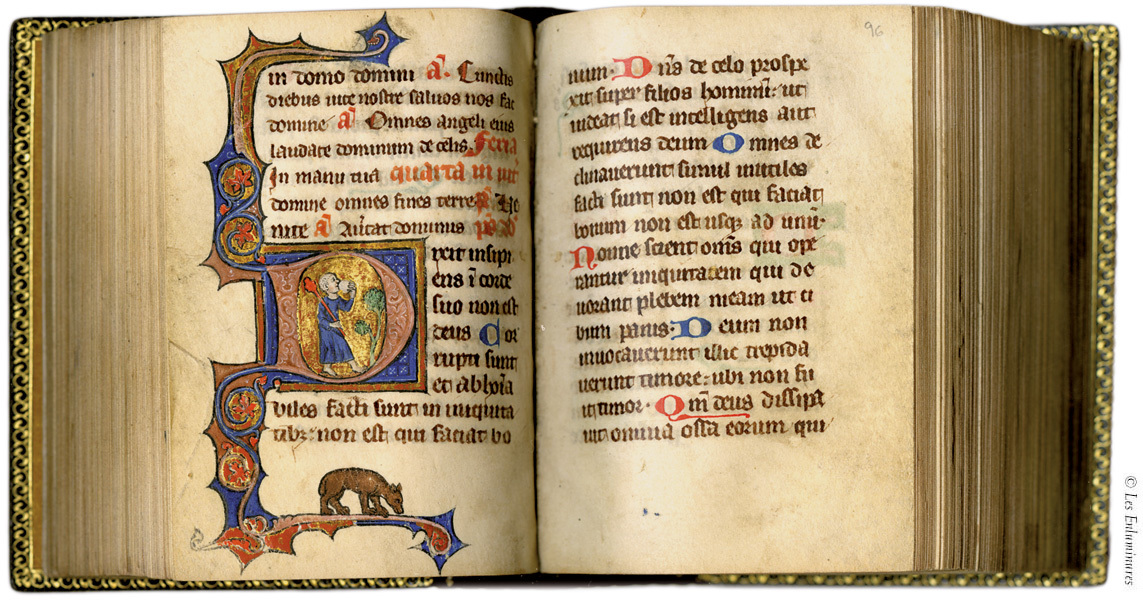 in domo domini a. Cunctis
diebus uite nostre saluos nos fac
domine a Omnes angeli eius
laudate dominum de celis. Feria
In manu tua quarta in
domine omnes fines terre Ve
nite a Auertat dominus ps dd
Dixit insipi
ens i corde
suo non est
deus Cor
rupti sunt
et abhoia
biles facti sunt in iniquita
tibz: non est qui faciat bo
96
num. Dns de celo prospe
xit super filios hominu: ut
uideat si est intelligens aut
requirens deum Omnes de
clinauerunt simul inutiles
facti sunt non est qui faciat
bonum non est usqz ad unu.
Nonne scient oms qui ope
rantur iniquitatem qui de
uorant plebem meam ut ci
bum panis: Deum non
inuocauerunt illic trepida
uerunt timore: ubi non fu
it timor. Qm deus dissipa
uit omnia ossa eorum qui
© Les Enluminures